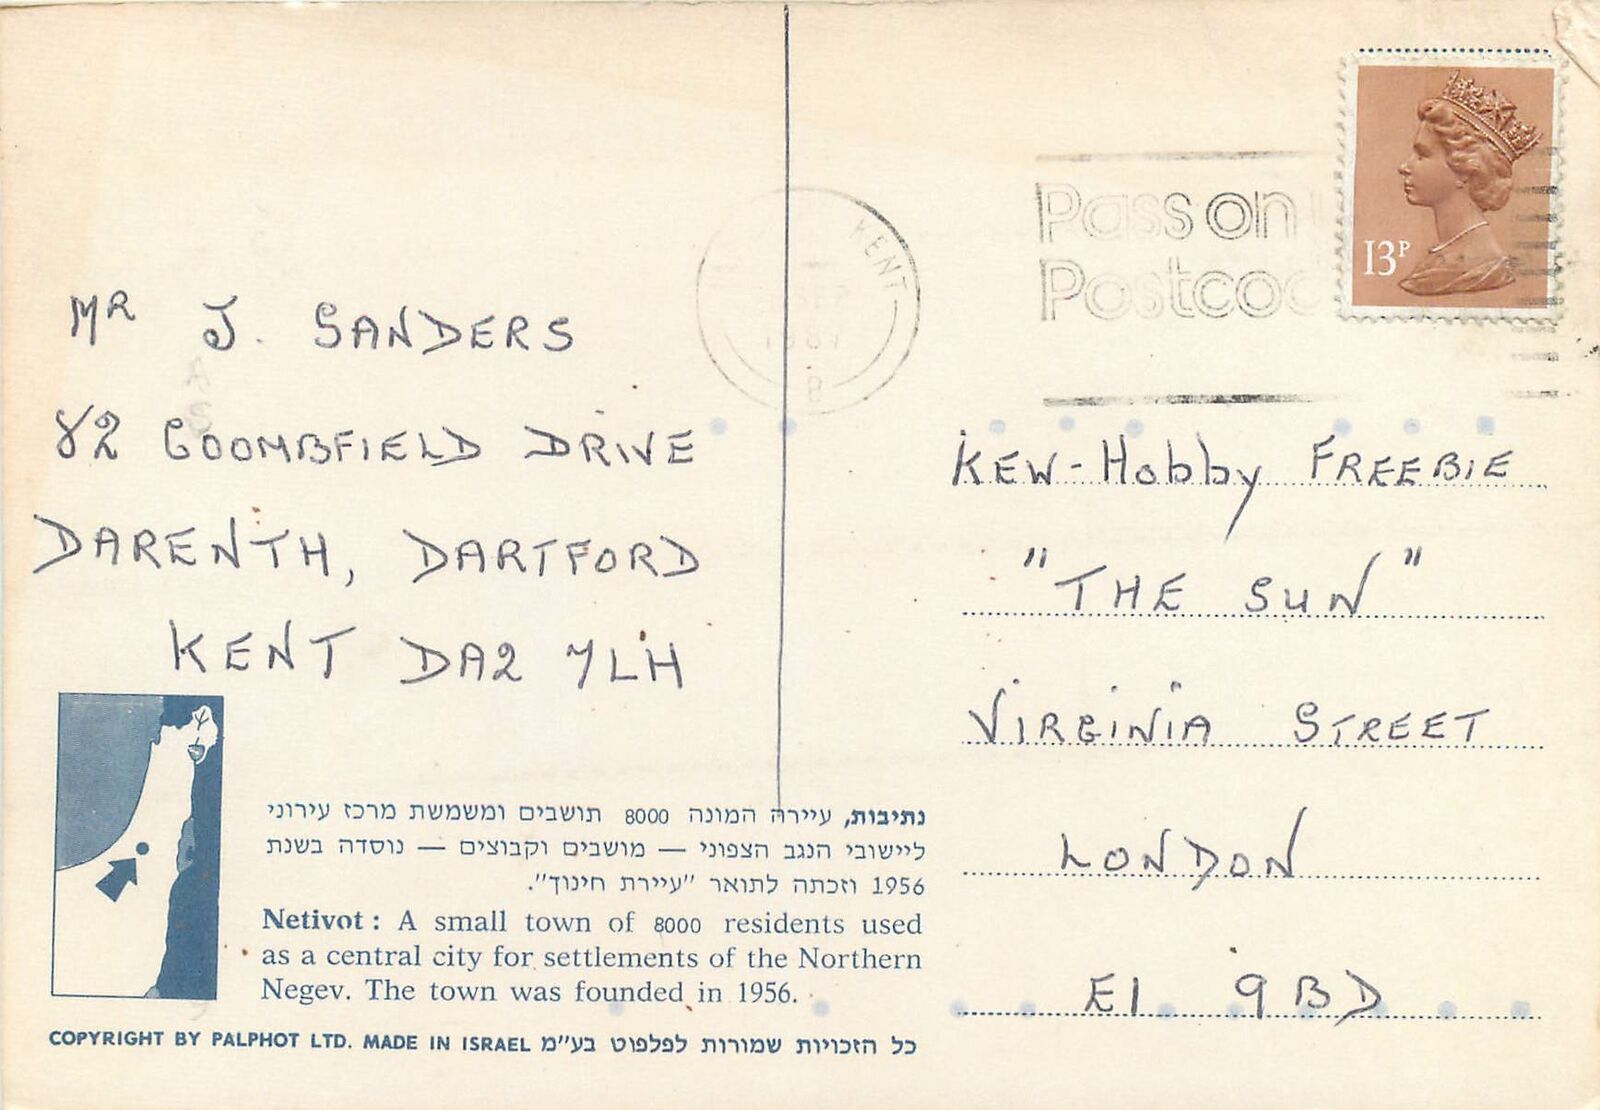 MR J. SANDERS
82 COOMBFIELD DRIVE
DARENTH, DARTFORD
KENT DA2 7LH
KENT
Pass on
13P
KEW-Hobby FREEBIE
"THE SUN"
VIRGINIA STREET
LONDON
E1 9BD
נתיבות, עיירה המונה 8000 תושבים ומשמשת מרכז עירוני
ליישובי הנגב הצפוני — מושבים וקבוצים — נוסדה בשנת
1956 וזכתה לתואר "עיירת חינוך".
Netivot: A small town of 8000 residents used
as a central city for settlements of the Northern
Negev. The town was founded in 1956.
COPYRIGHT BY PALPHOT LTD. MADE IN ISRAEL כל הזכויות שמורות לפלפוט בע"מ